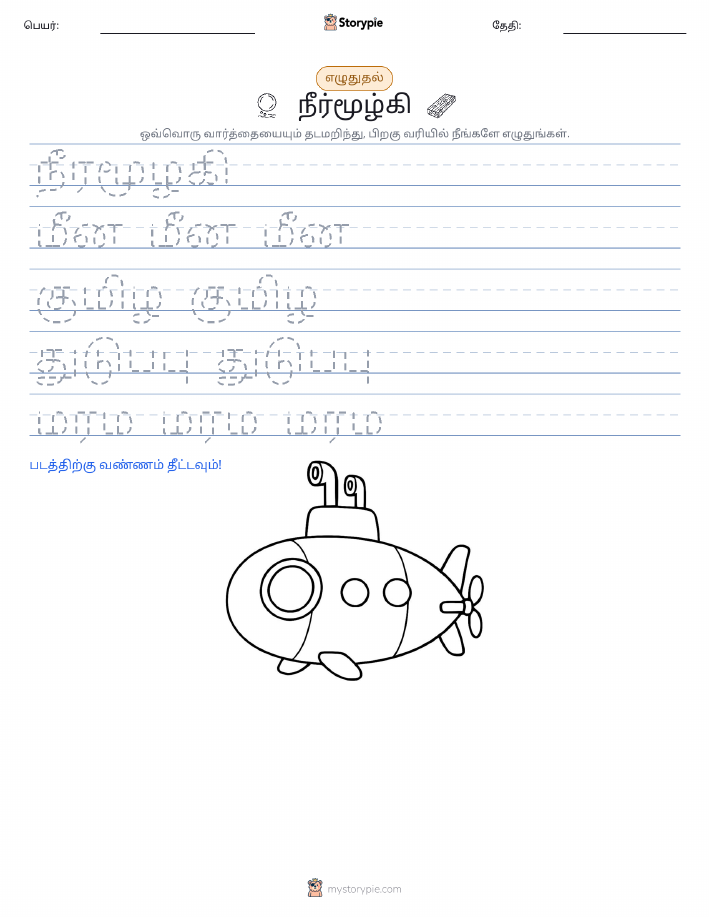 பெயர்:
Storypie
தேதி:
எழுதுதல்
நீர்மூழ்கி
ஒவ்வொரு வார்த்தையையும் தடமறிந்து, பிறகு வரியில் நீங்களே எழுதுங்கள்.
நீரமூழகி
மீன மீன மீன
குமிழ குமிழ
துடுபபு துடுபபு
மரம மரம மரம
படத்திற்கு வண்ணம் தீட்டவும்!
mystorypie.com